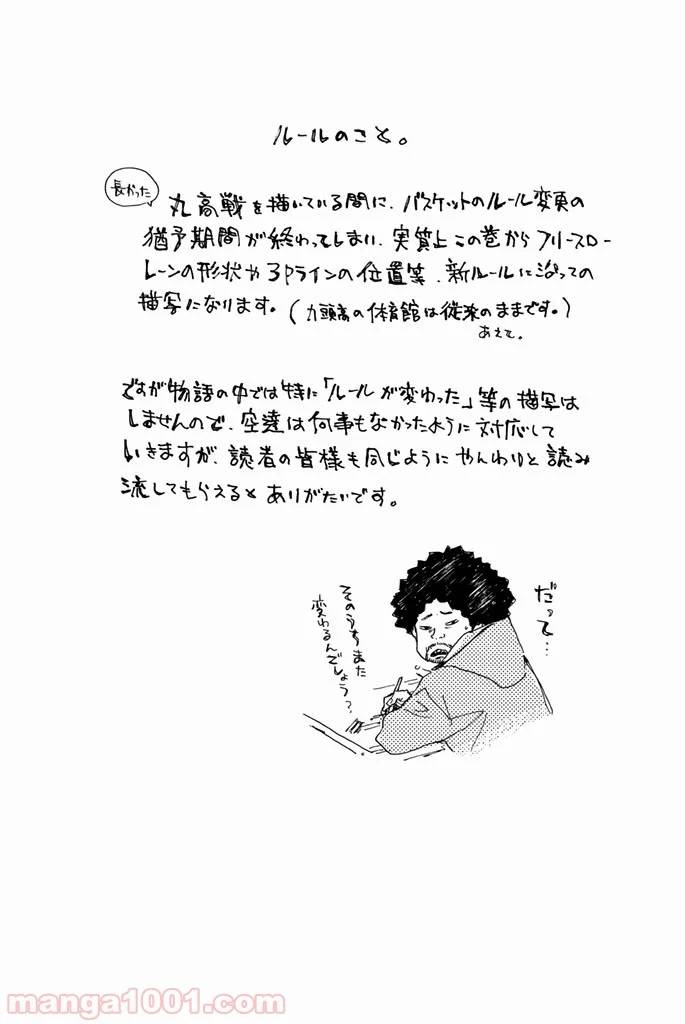 ルールのこと。
長かった
丸高戦を描いている間に、バスケットのルール変更の
猶予期間が終わってしまい、実質上この巻からフリースロー
レーンの形状や3Pラインの位置等、新ルールに沿っての
描写になります。(九頭高の体育館は従来のままです。)
あえて。
ですが物語の中では特に「ルールが変わった」等の描写は
しませんので、空達は何事もなかったように対応して
いきますが、読者の皆様も同じようにやんわりと読み
流してもらえるとありがたいです。
だって…
そのうちまた
変わるんでしょう?
manga1001.com